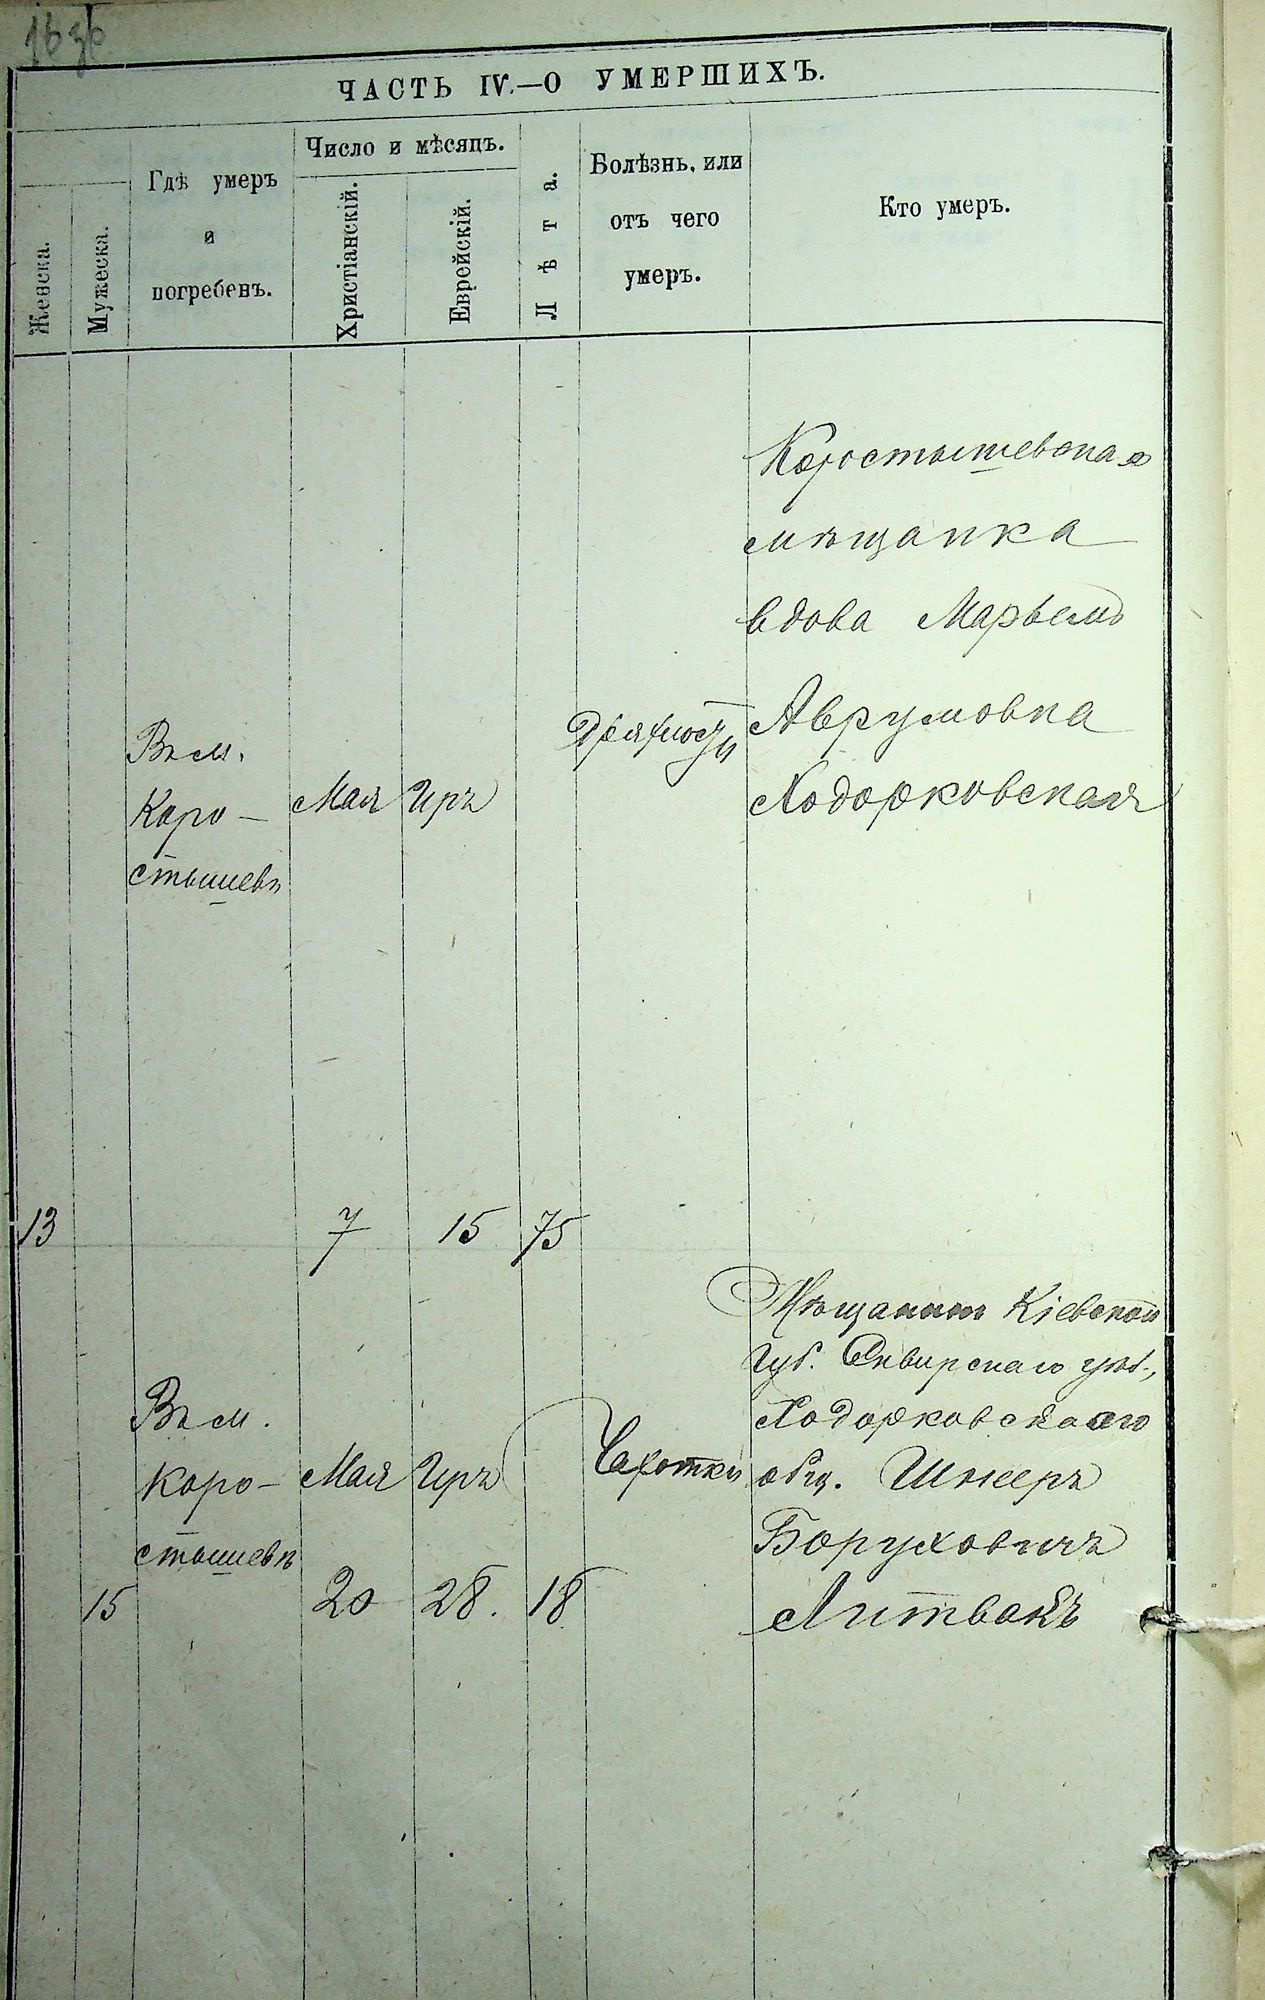 ЧАСТЬ IV.—О УМЕРШИХЪ.
Женска.
Мужеска.
Гдѣ умеръ
и
погребенъ.
Число и мѣсяцъ.
Христіанскій.
Еврейскій.
Лѣта.
Болѣзнь, или
отъ чего
умеръ.
Кто умеръ.
Коростышевская
мѣщанка
вдова Марьемъ
Аврумовна
Ходорковская
Дряхлости
Въ м.
Коро-
стышевѣ
Мая
Иръ
13
7
15
75
Мѣщанинъ Кіевской
губ. Сквирскаго уѣз.,
Ходорковскаго
общ. Шнееръ
Боруховичъ
Литвакъ
Въ м.
Коро-
стышевѣ
Мая
Иръ
Чахотки
15
20
28.
18